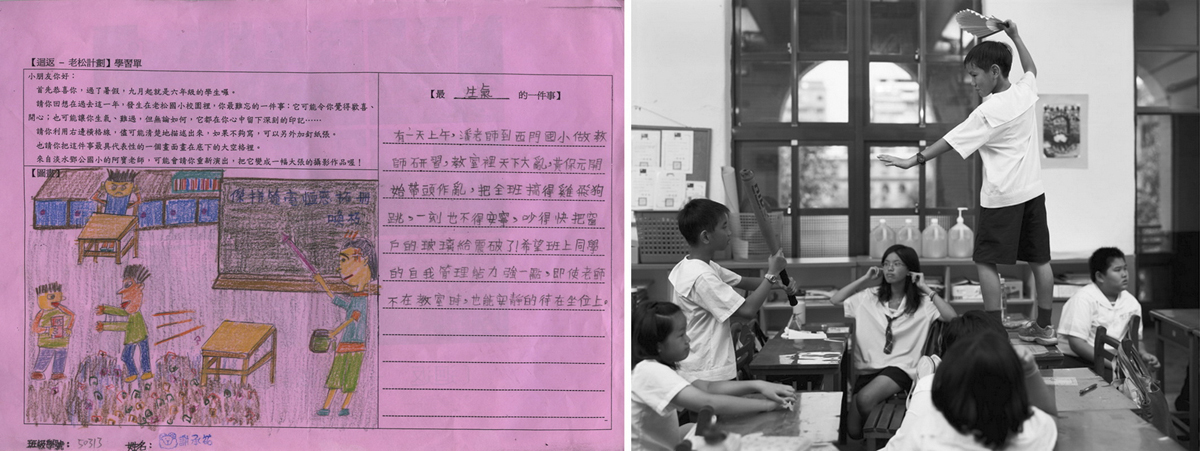 【迴返－老松計劃】學習單
小朋友你好：
首先恭喜你，過了暑假，九月起就是六年級的學生喔。
請你回想在過去這一年，發生在老松國小校園裡，你最難忘的一件事；它可能令你覺得歡喜、
開心；也可能讓你生氣、難過，但無論如何，它都在你心中留下深刻的印記……
請你利用右邊橫格線，儘可能清楚地描述出來，如果不夠寫，可以另外加釘紙張。
也請你把這件事最具代表性的一個畫面畫在底下的大空格裡。
來自淡水鄧公國小的阿寶老師，可能會請你重新演出，把它變成一幅大張的攝影作品喔！
【圖畫】
【最 生氣 的一件事】
有一天上午，潘老師到西門國小做教
師研習，教室裡天下大亂，黃保元開
始帶頭作亂，把全班搞得雞飛狗
跳，一刻也不得安寧，吵得快把窗
戶的玻璃給震破了！希望班上同學
的自我管理能力強一點，即使老師
不在教室時，也能安靜的待在坐位上。
班級學號：50313
姓名：